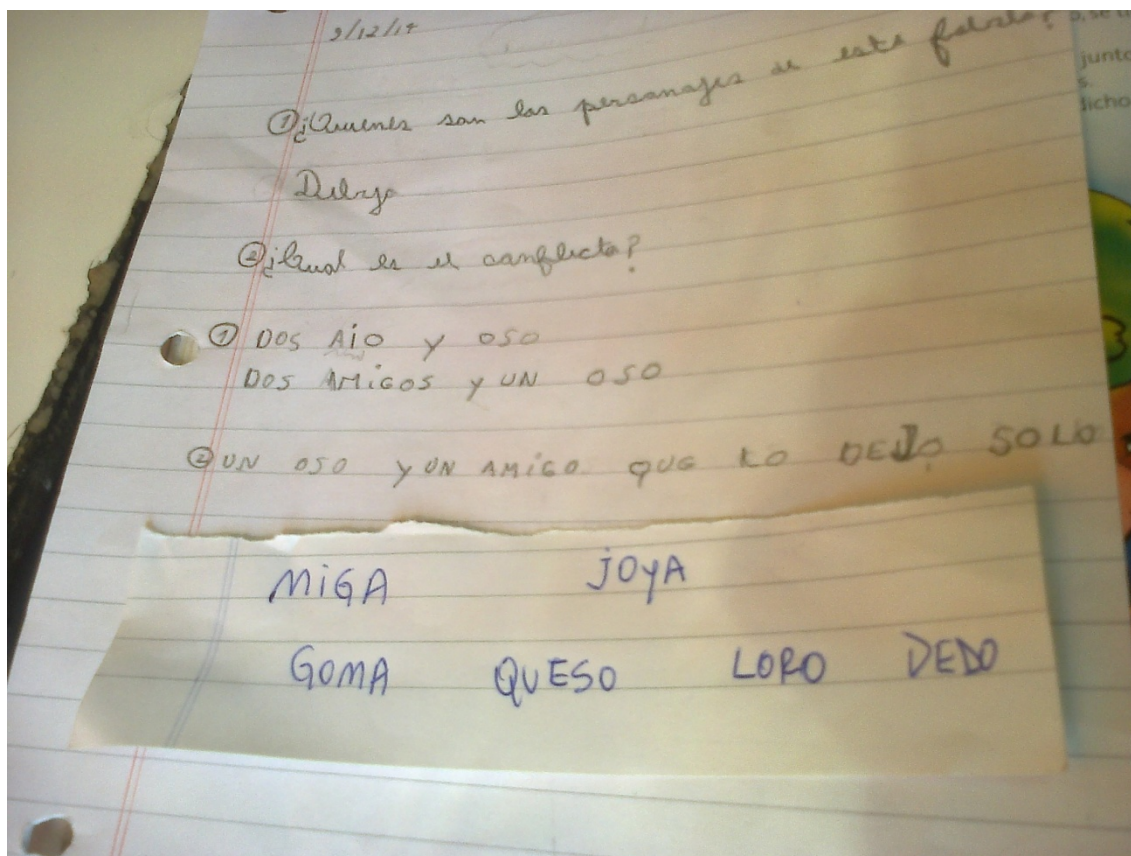 9/12/14
① ¿Quienes son los personajes de esta fabula?
Dibujo
② ¿Cual es el conflicto?
① DOS AiO Y OSO
DOS AMiGOS Y UN OSO
② UN OSO Y UN AMiGO QUE LO DEJO SOLO
MiGA jOYA
GOMA QUESO LORO DEDO
junto
dicho